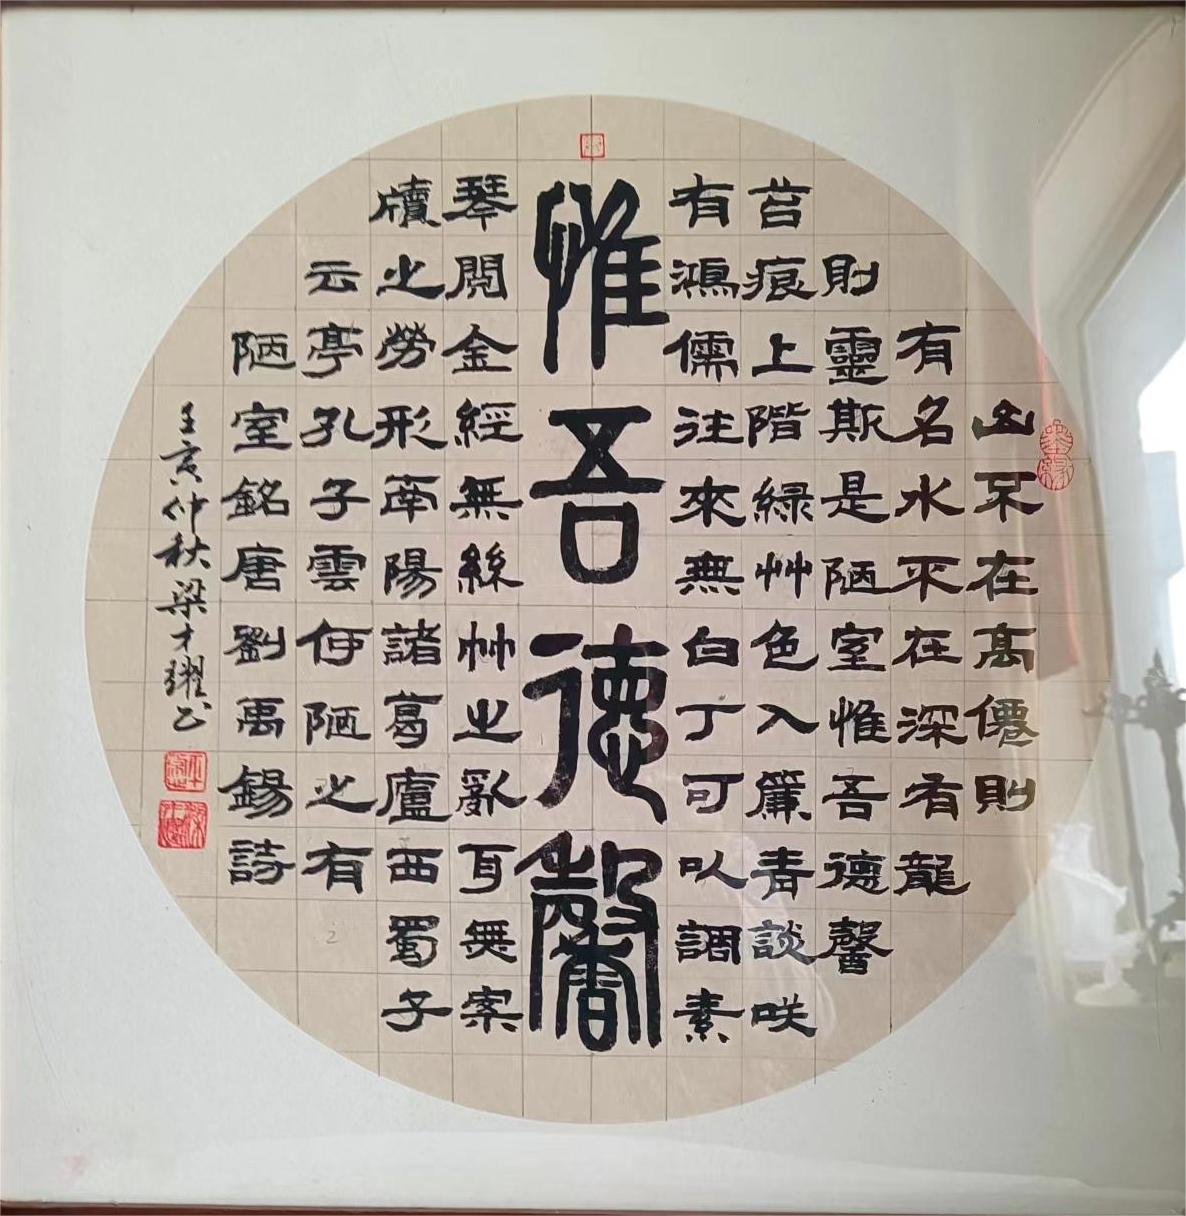 山不在高僊則
有名水不在深有龍
則靈斯是陋室惟吾德馨
苔痕上階緑艸色入簾青談咲
有鴻儒往來無白丁可以調素
惟吾德馨
琴閲金經無絲竹之亂耳無案
牘之勞形南陽諸葛廬西蜀子
云亭孔子雲何陋之有
陋室銘唐劉禹錫詩
壬寅仲秋梁才耀书